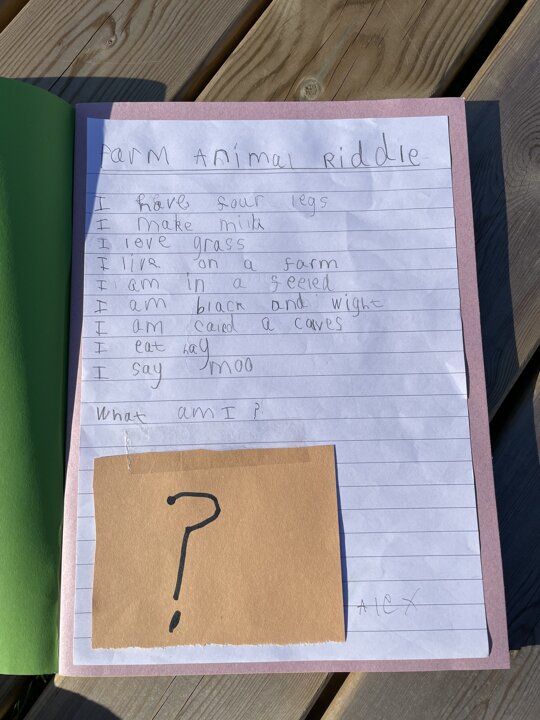 Farm Animal Riddle
I have four legs
I make milk
I love grass
I live on a farm
I am in a feeled
I am black and wight
I am caled a caves
I eat hay
I say moo
What am I?
?
Alex